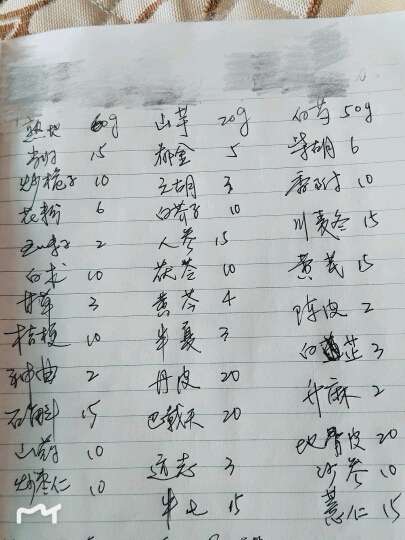 熟地 60g 山芋 20g 白芍 50g
当归 15 郁金 5 柴胡 6
炒栀子 10 元胡 3 香附 10
花粉 6 白芥子 10 川麦冬 15
2 人参 15 黄芪 15
白术 10 茯苓 10 陈皮 2
甘草 3 黄芩 4 白芷 3
桔梗 10 半夏 3 升麻 2
神曲 2 丹皮 20 地骨皮 20
石斛 15 巴戟天 20 沙参 10
山药 10 远志 3 薏仁 15
炒枣仁 10 牛七 15